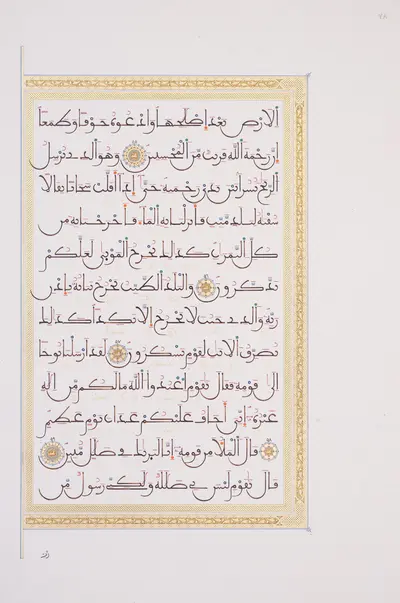 الارض بعد اصلحها وادعوه خوفا وطمعا
ان رحمة الله قريب من المحسنين وهو الذي يرسل
الريح بشرا بين يدي رحمته حتى اذا اقلت سحابا ثقالا
سقنه لبلد ميت فانزلنا به الماء فاخرجنا به من
كل الثمرات كذلك نخرج الموتى لعلكم
تذكرون والبلد الطيب يخرج نباته باذن
ربه والذي خبث لا يخرج الا نكدا كذلك
نصرف الايت لقوم يشكرون لقد ارسلنا نوحا
الى قومه فقال يقوم اعبدوا الله ما لكم من اله
غيره اني اخاف عليكم عذاب يوم عظيم
قال الملا من قومه انا لنريك في ضلل مبين
قال يقوم ليس بي ضللة ولكني رسول من